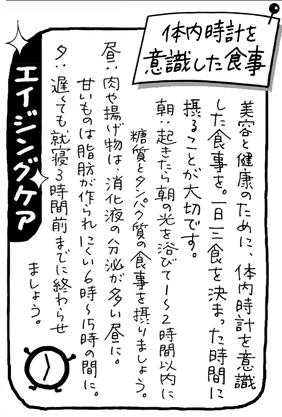 体内時計を
意識した食事
エイジングケア
美容と健康のために、体内時計を意識
した食事を。一日三食を決まった時間に
摂ることが大切です。
朝：起きたら朝の光を浴びて1〜2時間以内に
糖質とタンパク質の食事を摂りましょう。
昼：肉や揚げ物は、消化液の分泌が多い昼に。
甘いものは脂肪が作られにくい6時〜15時の間に。
夕：遅くても就寝3時間前までに終わらせ
ましょう。